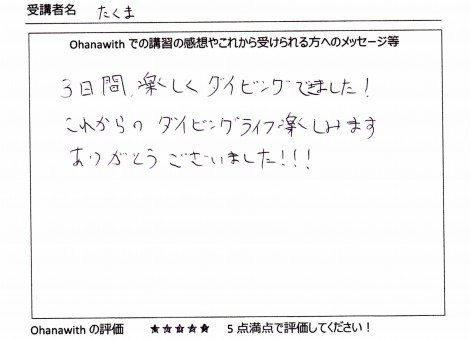 受講者名 たくま
Ohanawith での講習の感想やこれから受けられる方へのメッセージ等
3日間、楽しくダイビングできました!
これからのダイビングライフ楽しみます
ありがとうございました!!!
Ohanawith の評価 ★★★★★ 5点満点で評価してください!